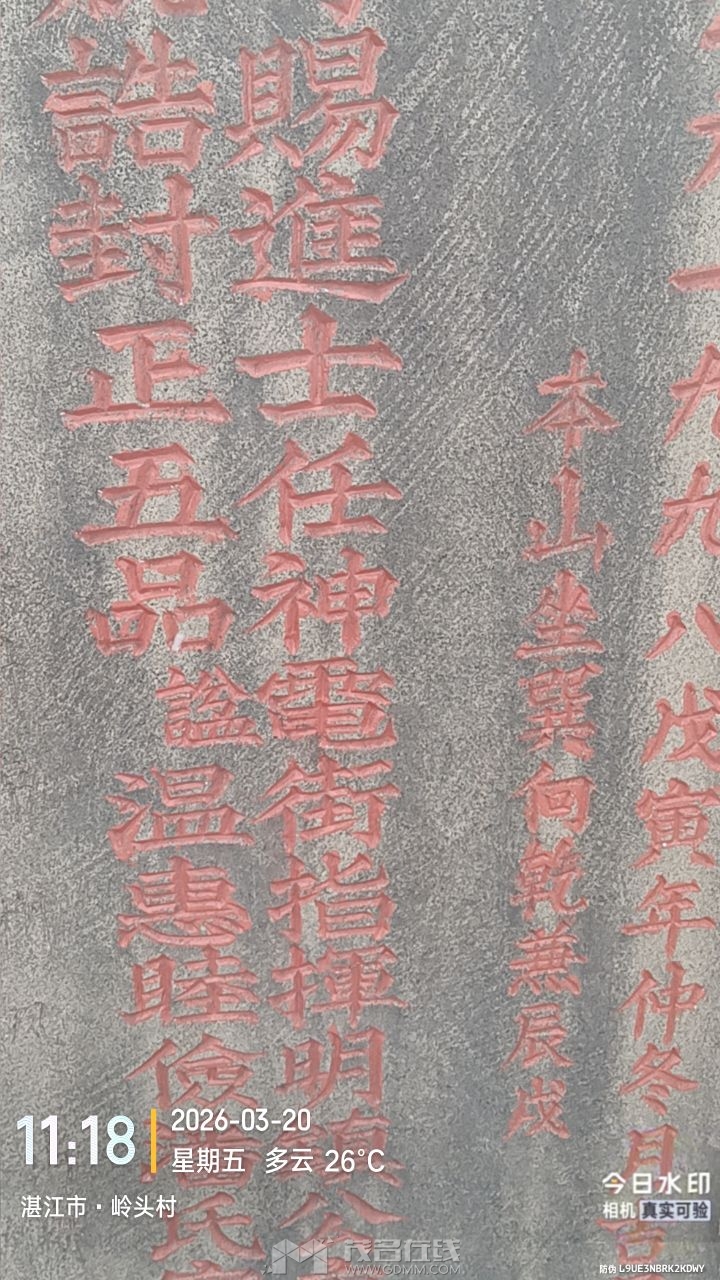 一九九八戊寅年仲冬月吉
本山坐巽向乾兼辰戌
賜進士任神電衛指揮明鎮公
誥封正五品謚温惠睦儉氏
11:18
2026-03-20
星期五 多云 26°C
湛江市·岭头村
今日水印
相机 真实可验
防伪 L9UE3NBRK2KDWY
茂名在线
WWW.GDMM.COM